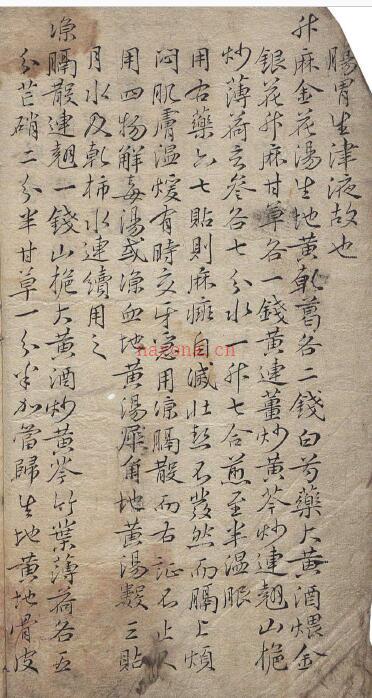 腸胃生津液故也
升麻金花湯生地黃乾葛各二錢白芍藥大黃酒煨金
銀花升麻甘草各一錢黃連薑炒黃芩炒連翹山梔
炒薄荷玄參各七分水一升七合煎至半溫服
用右藥六七貼則麻癍自滅壯熱不發然而膈上煩
悶肌膚溫煖有時交牙之用凉膈散而右証不止又
用四物解毒湯或凉血地黃湯犀角地黃湯數三貼
月水及乾柿水連續用之
凉膈散連翹一錢山梔大黃酒炒黃芩竹葉薄荷各五
分芒硝二分半甘草一分半加當歸生地黃地骨皮
nazuna.cn